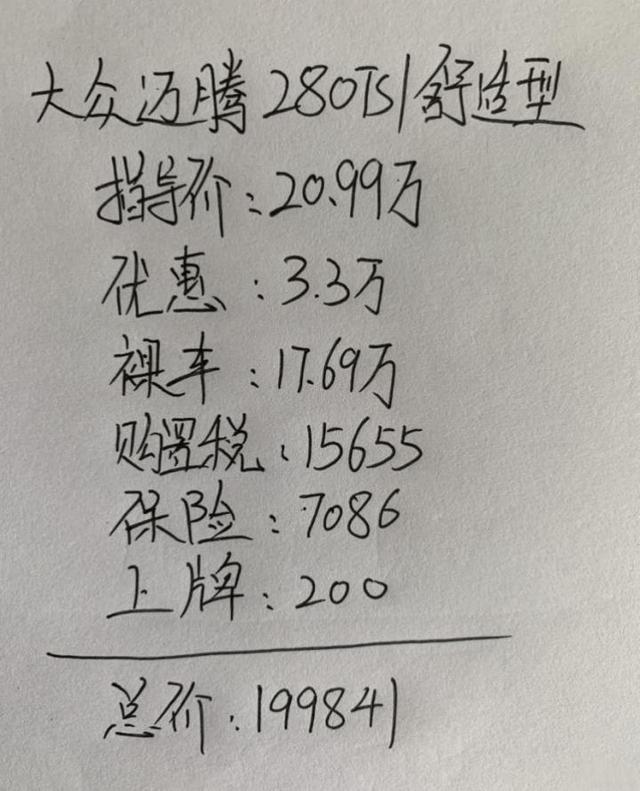 大众迈腾280TSI舒适型
指导价:20.99万
优惠:3.3万
裸车:17.69万
购置税:15655
保险:7086
上牌:200
总价:199841